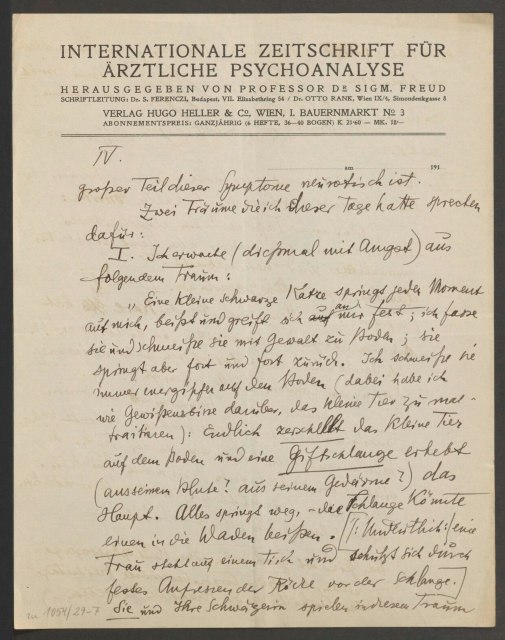 INTERNATIONALE ZEITSCHRIFT FÜR
ÄRZTLICHE PSYCHOANALYSE
HERAUSGEGEBEN VON PROFESSOR DR SIGM. FREUD
SCHRIFTLEITUNG: Dr. S. FERENCZI, Budapest, VII. Elisabethring 54 / Dr. OTTO RANK, Wien IX/4, Simondenkgasse 8
VERLAG HUGO HELLER & Co, WIEN, I. BAUERNMARKT No 3
ABONNEMENTSPREIS: GANZJÄHRIG (6 HEFTE, 36—40 BOGEN) K 21·60 — MK. 18·—
IV.
am 191
großer Teil dieser Symptome neurotisch ist.
Zwei Träume die ich dieser Tage hatte sprechen
dafür:
I. Ich erwachte (diesmal mit Angst) aus
folgendem Traum:
„Eine kleine schwarze Katze springt jeden Moment
auf mich, beißt und greift sich auf an mir fest; ich fasse
sie und schmeiße sie mit Gewalt zu Boden; sie
springt aber fort und fort zurück. Ich schmeiße sie
immer energischer auf den Boden (dabei habe ich
wie Gewißensbisse darüber, das kleine Tier zu mal-
traitieren): Endlich zerschellt das kleine Tier
auf dem Boden und eine Giftschlange erhebt
(aus seinem Blute? aus seinem Gedärme?) das
Haupt. Alles springt weg, – die Schlange könnte
einen in die Waden beißen. [I: Undeutlich: eine
Frau steht auf einem Tisch und schützt sich durch
festes Anpressen der Röcke vor der Schlange.]
Sie und Ihre Schwägerin spielen in diesem Traum
zu 1054/29-7